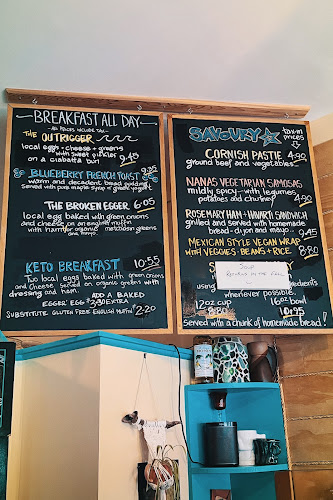 BREAKFAST ALL DAY
THE OUTRIGGER
local eggs - cheese + greens
with sweet pickles
on a ciabatta bun 9.45
BLUEBERRY FRENCH TOAST 9.35
warm and decadent bread pudding
THE BROKEN EGGER 6.05
local egg baked with green onions
and cheese on an english muffin
with ham or organic
and mayo
KETO BREAKFAST 10.55
Two local eggs baked with green onions
and cheese served on organic greens with
dressing and ham.
ADD A BAKED
EGGER EXTRA
SUBSTITUTE GLUTEN FREE ENGLISH MUFFIN 2.20
SAVOURY
tax in
prices
CORNISH PASTIE 4.90
ground beef and vegetables
NANAS VEGETARIAN SAMOSAS
mildly spicy - with legumes,
potatoes and chutney 4.90
ROSEMARY HAM + HAVARTI SANDWICH
grilled and served with homemade
bread - dijon and mayo. 9.45
MEXICAN STYLE VEGAN WRAP
WITH VEGGIES - BEANS + RICE 8.80
SOUP
RETURNS IN THE FALL
using
ingredients
whenever possible.
12oz CUP 16oz bowl
8.80 10.95
Served with a chunk of homemade bread!